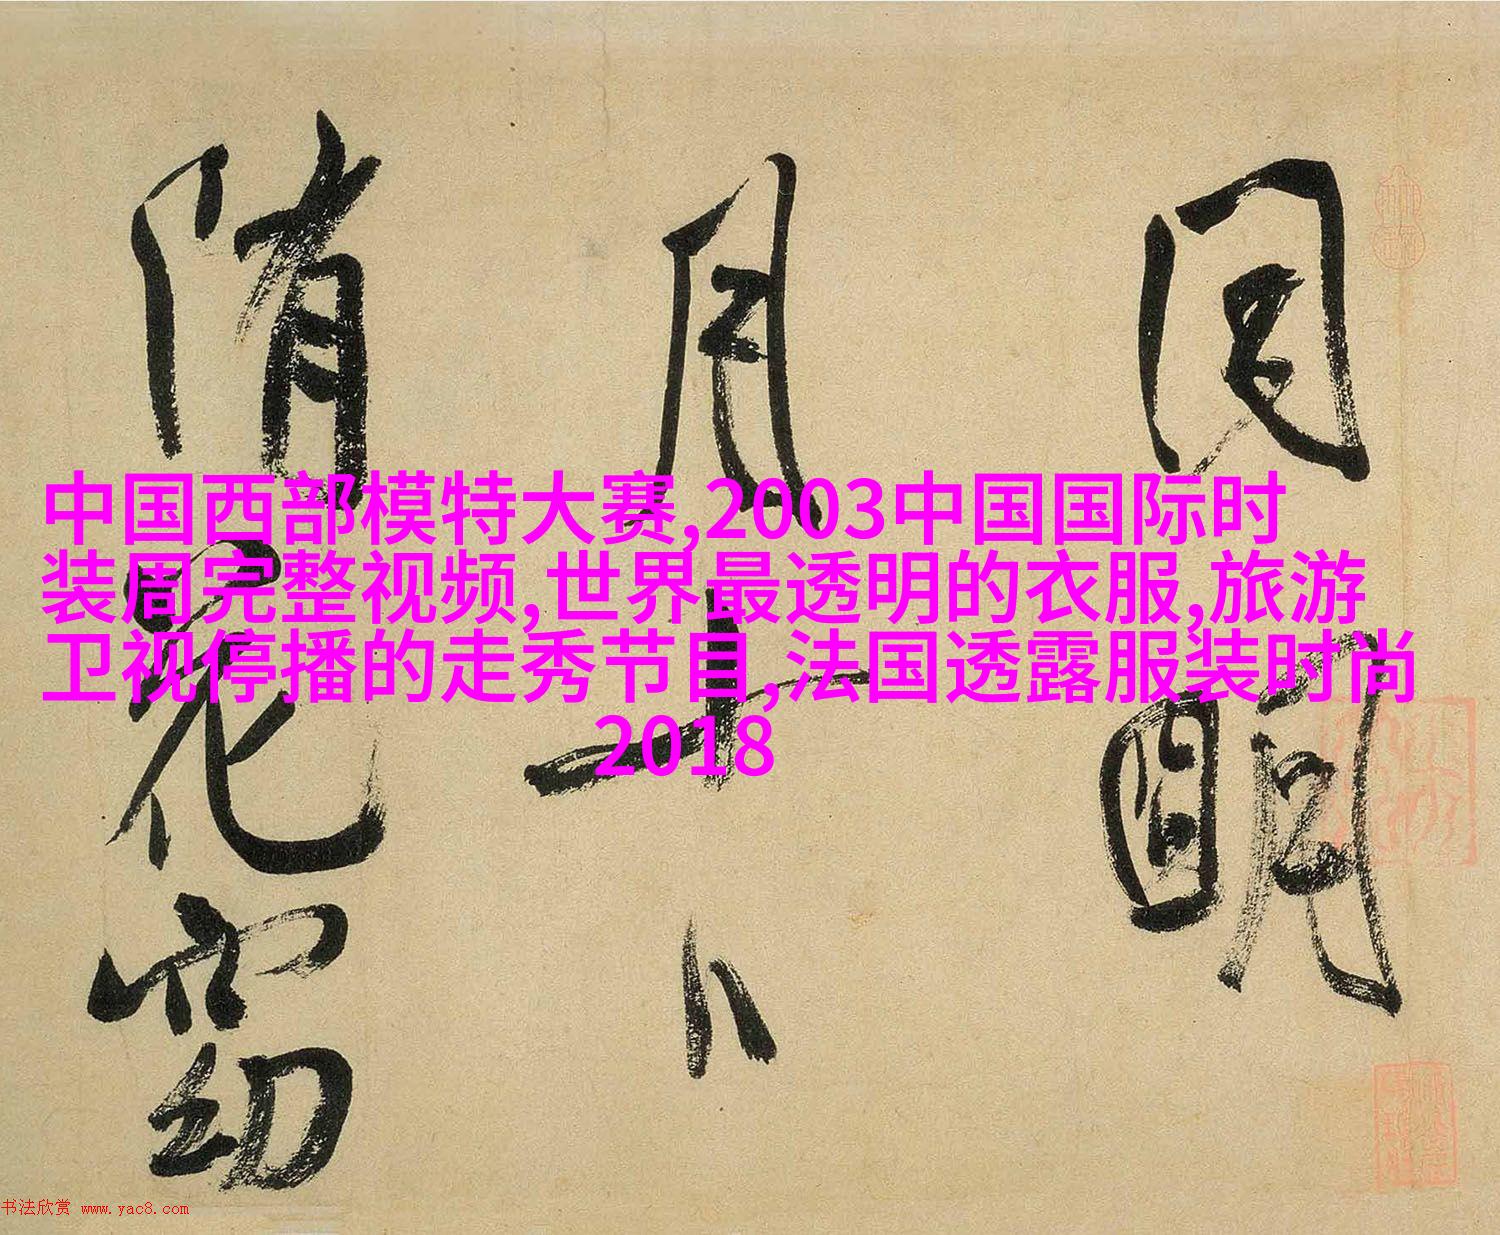 中国西部模特大赛,2003中国国际时
装周完整视频,世界最透明的衣服,旅游
卫视停播的走秀节目,法国透露服装时尚
2018
明
月十八
花窈
书法欣赏 www.yac8.com